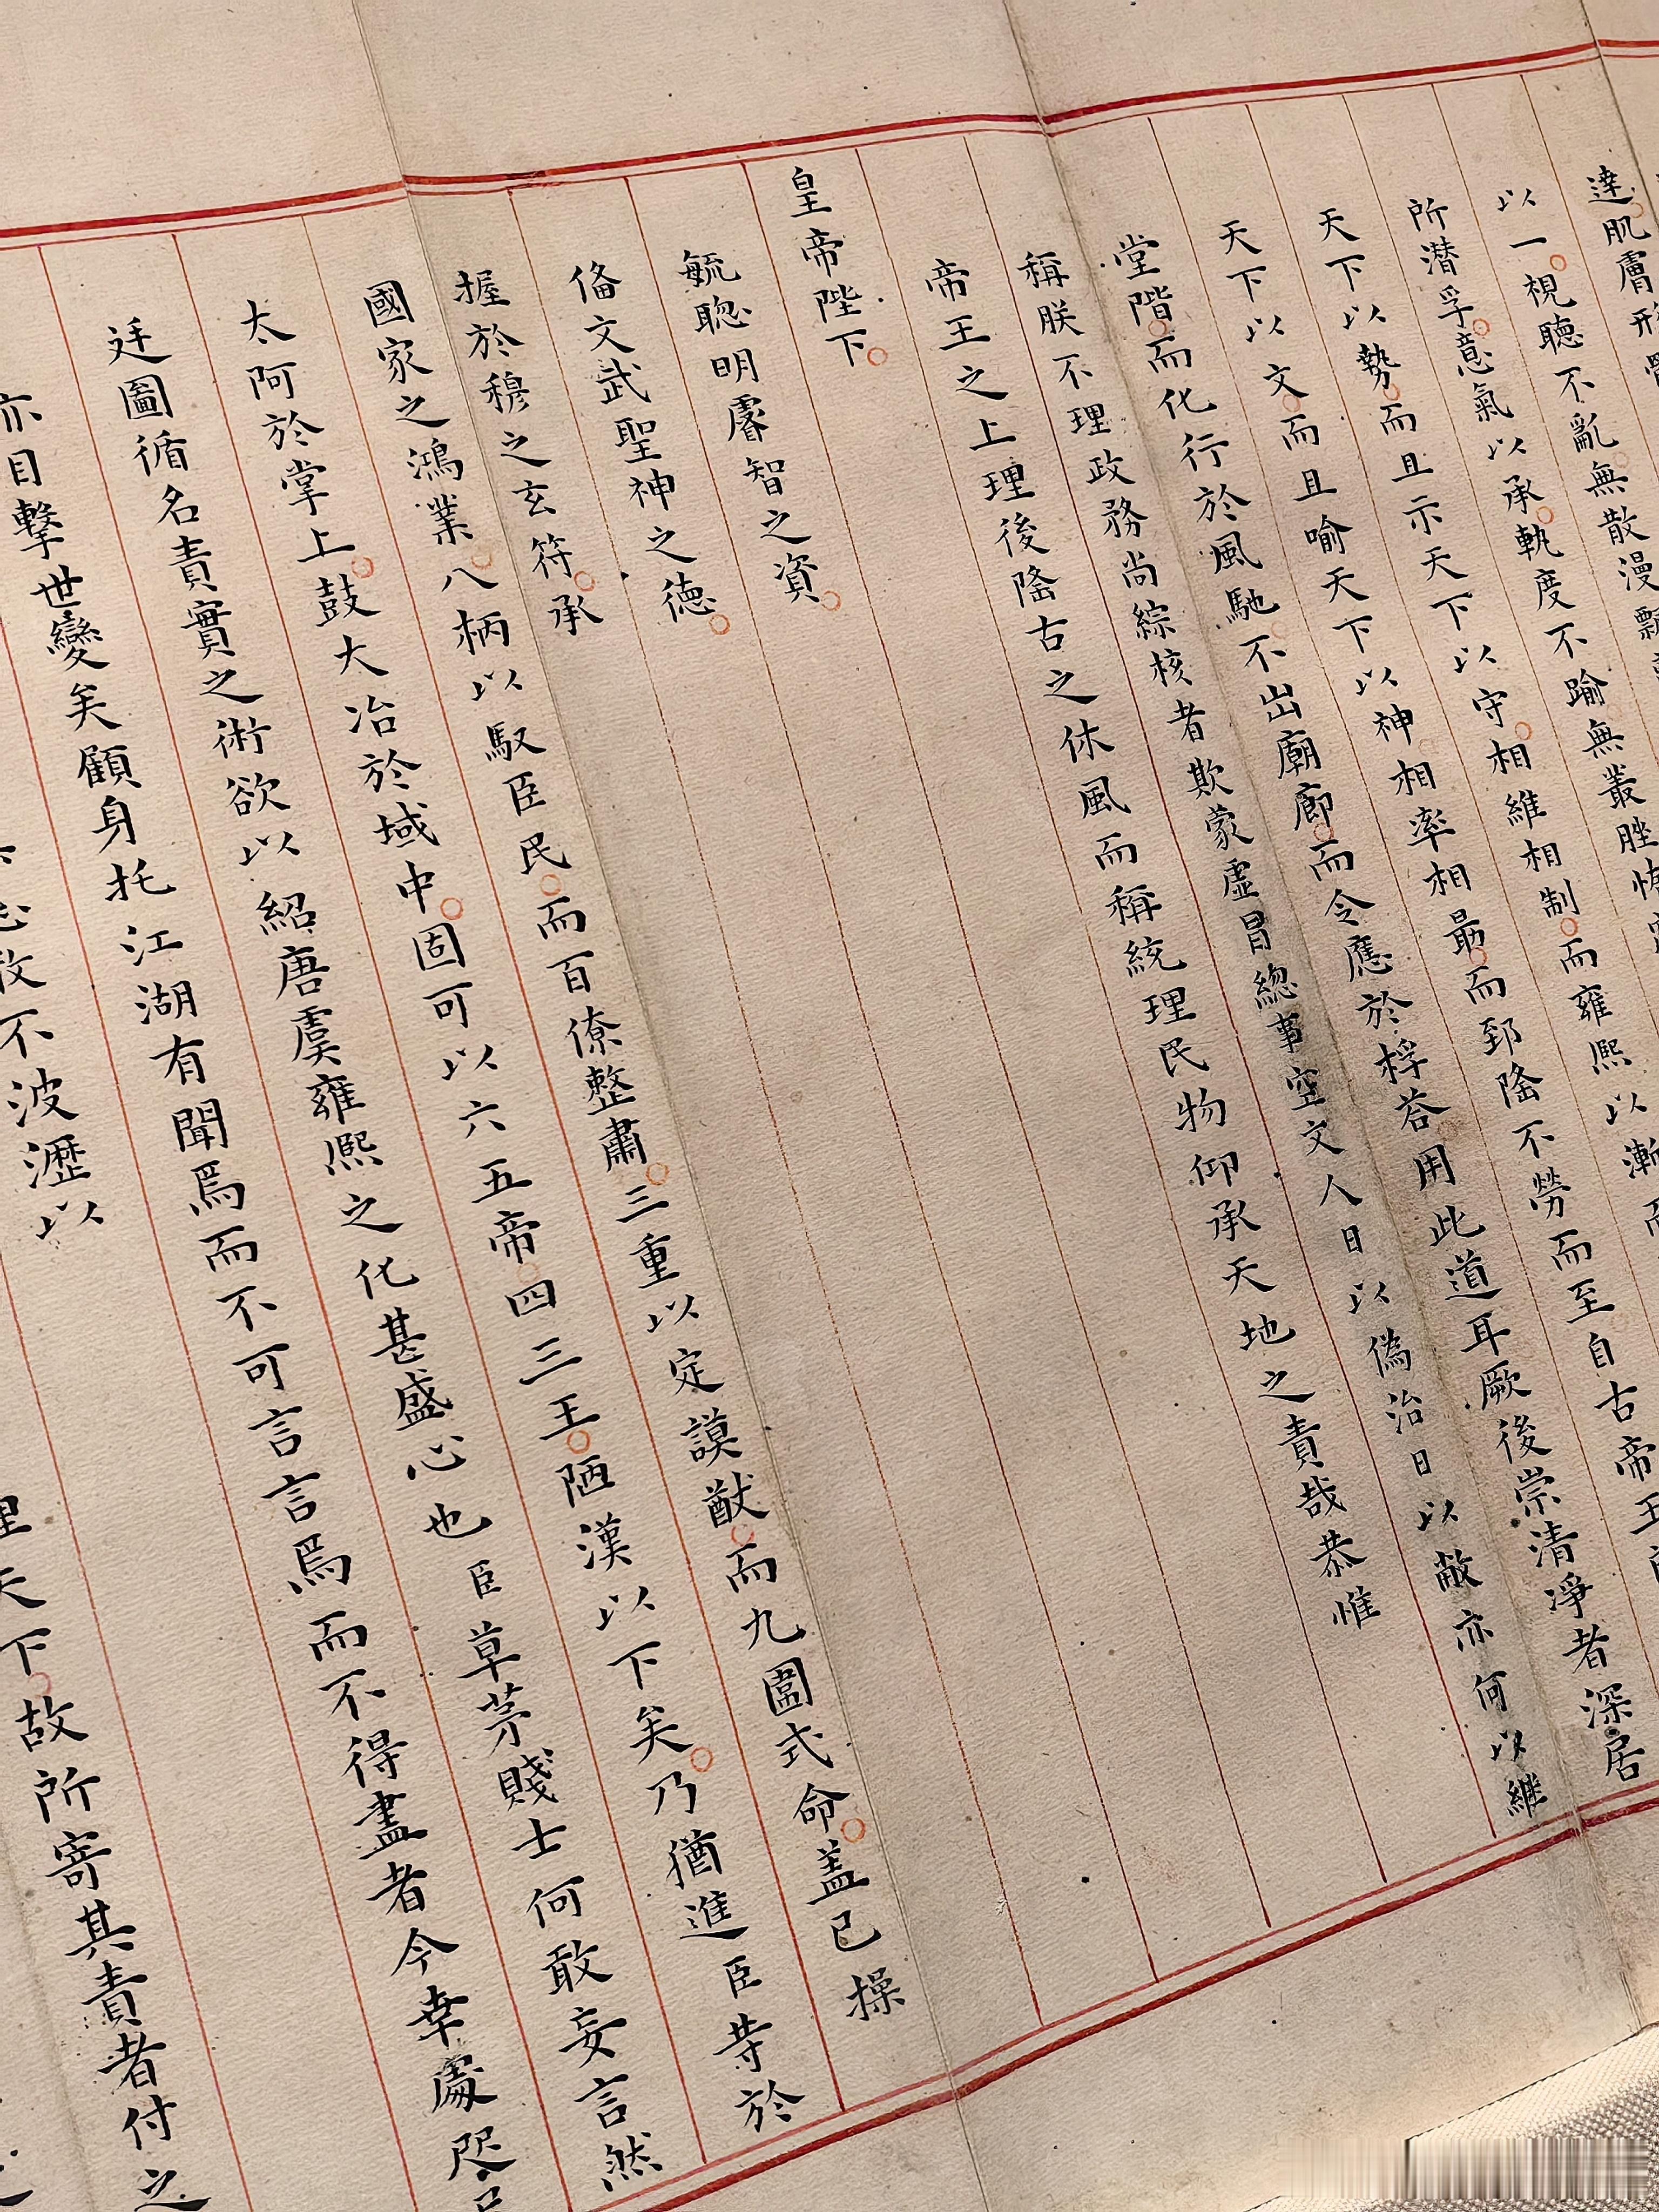 達肌膚形
以一視聽不亂無散漫
所潛孚意氣以承軌度不踰無叢脞
天下以勢而且示天下以守相維相制而雍熙以漸
天下以文而且喻天下以神相率相勗而郅隆不勞而至自古帝王
堂階而化行於風馳不出廟廊而令應於桴荅用此道耳厥後崇清淨者深居
稱朕不理政務尚綜核者欺蒙虛冒總事空文人日以偽治日以敝亦何以繼
帝王之上理後隆古之休風而稱統理民物仰承天地之責哉恭惟
皇帝陛下
毓聰明睿智之資
俻文武聖神之德
握於穆之玄符承
國家之鴻業八柄以馭臣民而百僚整肅三重以定謨猷而九圍式命蓋已操
太阿於掌上鼓大冶於域中固可以六五帝四三王陋漢以下矣乃猶進臣等於
廷圖循名責實之術欲以紹唐虞雍熙之化甚盛心也臣草茅賤士何敢妄言然
亦目擊世變矣顧身托江湖有聞焉而不可言言焉而不得盡者今幸處咫
敢不波瀝以
理天下故所寄其責者付之